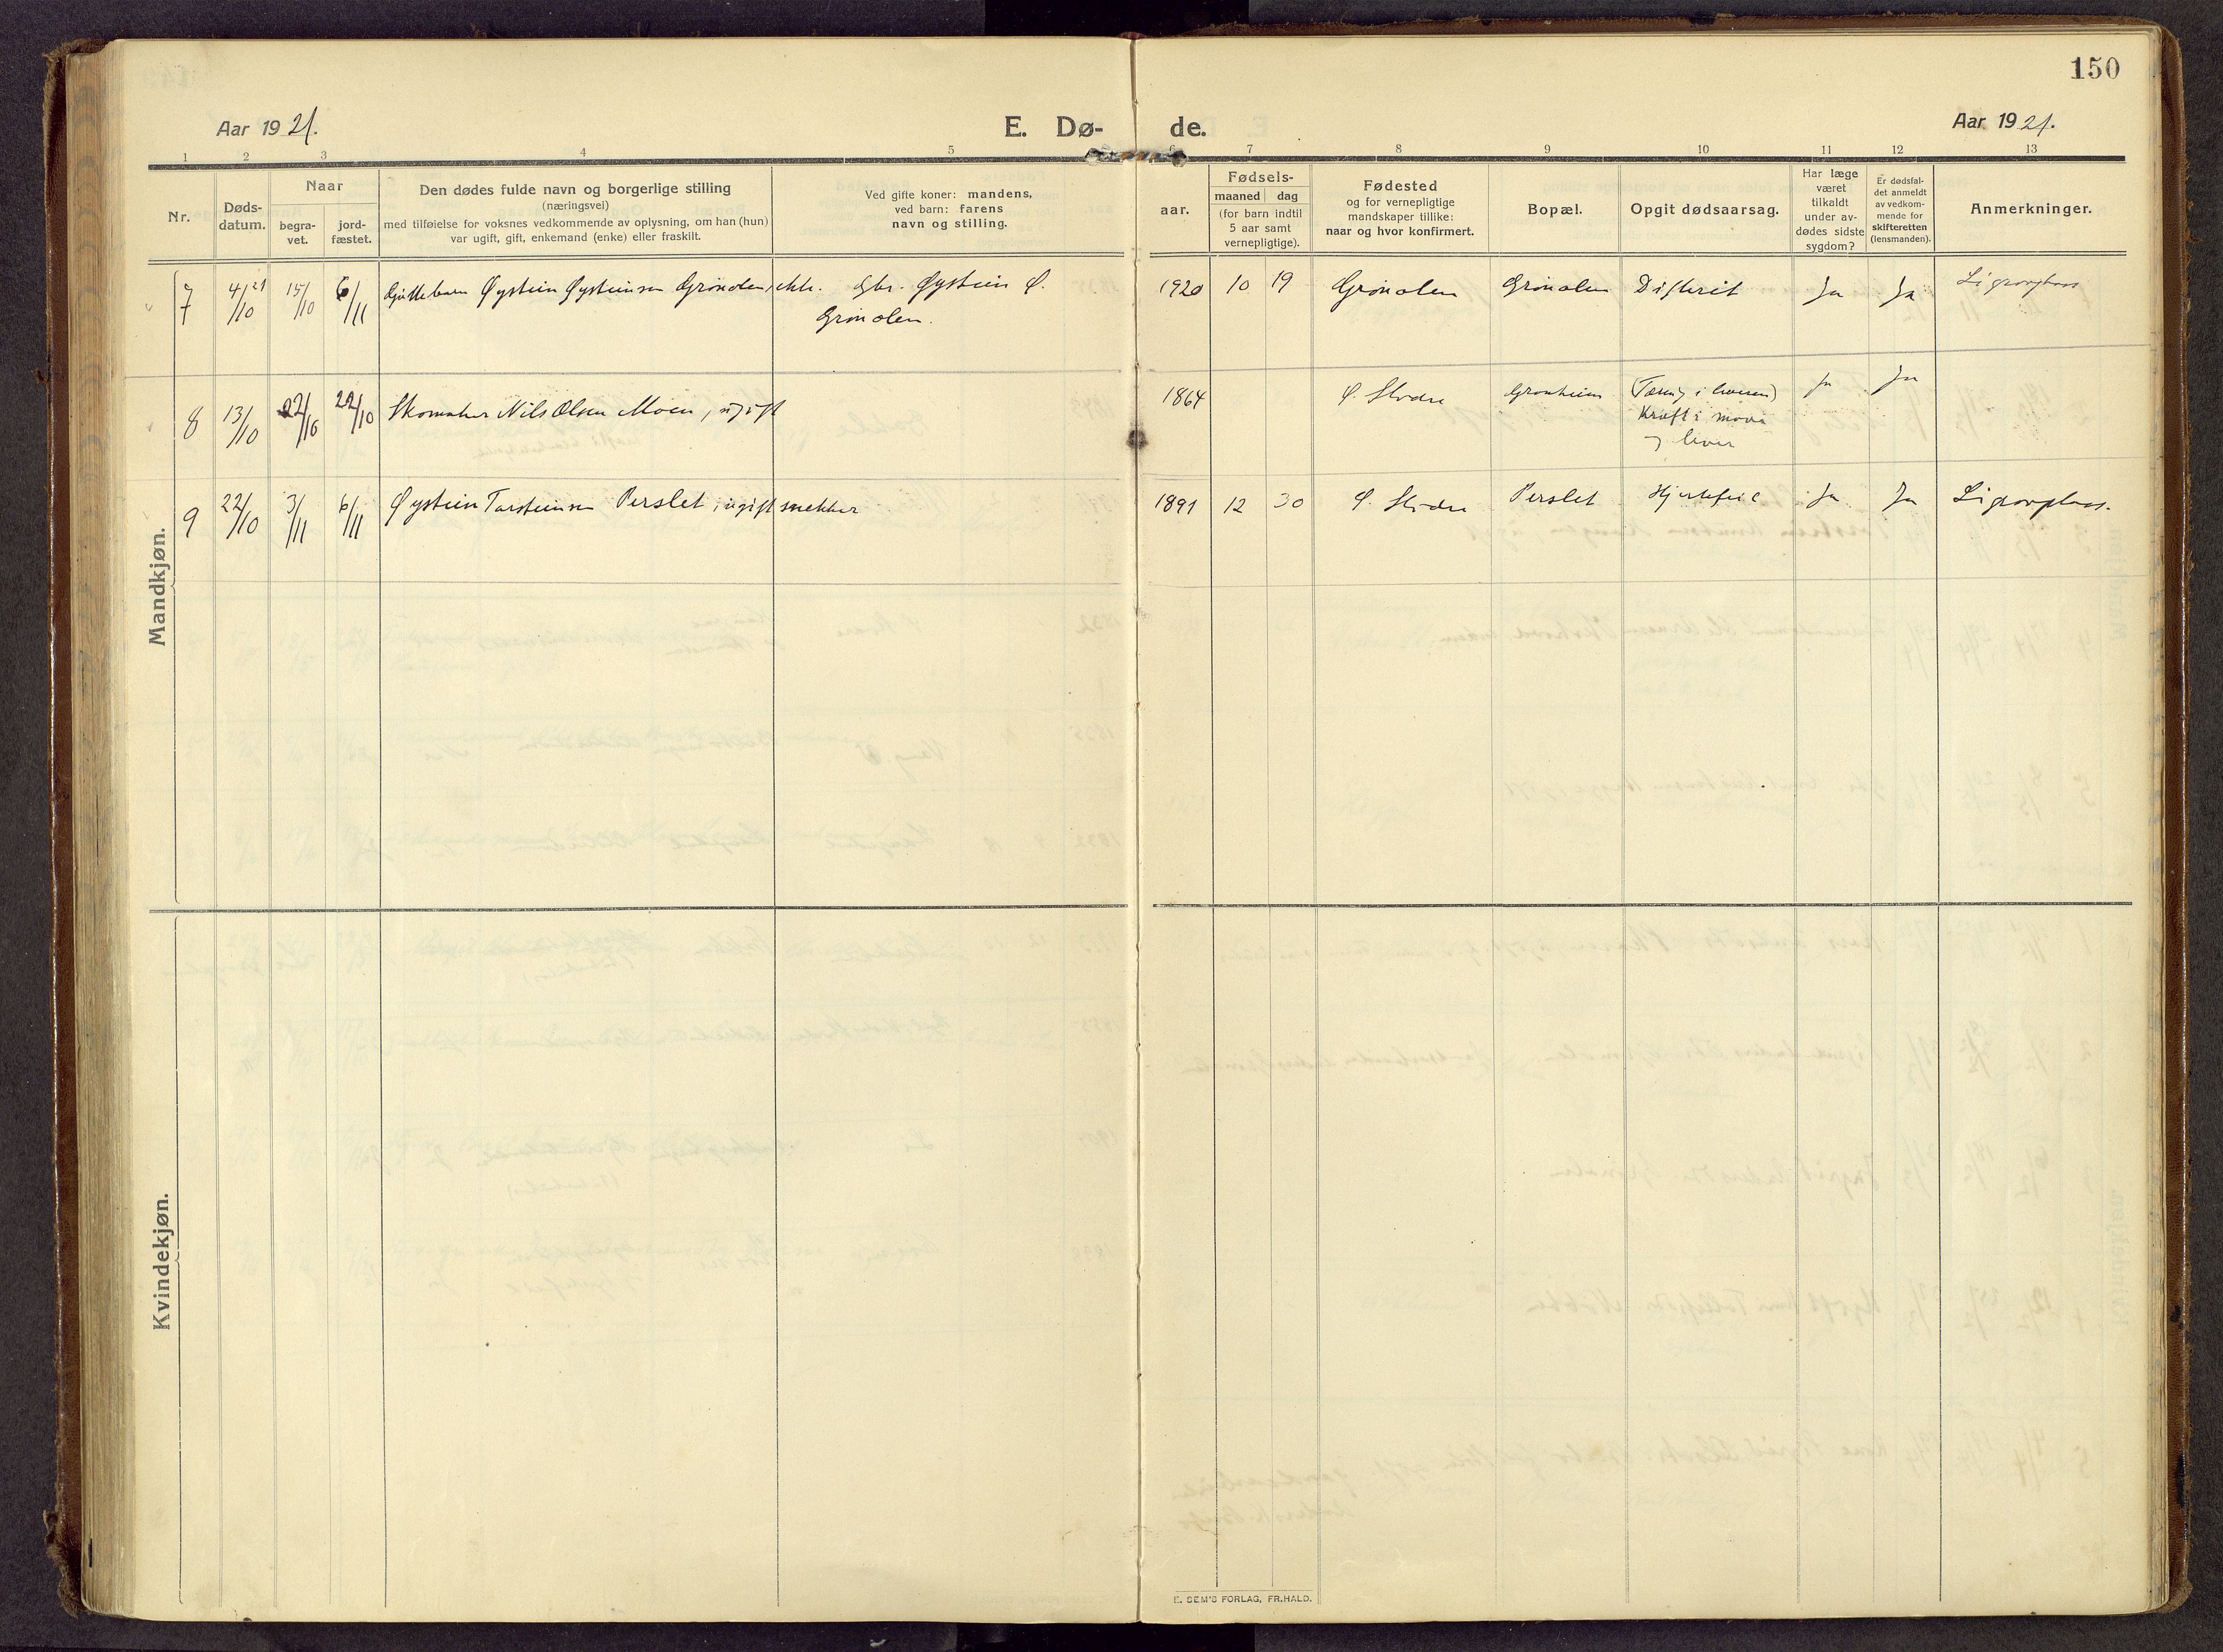 150
Aar 1921.
E. Dø-
de.
Aar 1921.
1 2 3 4 5 6 7 8 9 10 11 12 13
Nr.
Døds-
datum.
Naar
begra-
vet.
jord-
fæstet.
Den dødes fulde navn og borgerlige stilling
(næringsvei)
med tilføielse for voksnes vedkommende av oplysning, om han (hun)
var ugift, gift, enkemand (enke) eller fraskilt.
Ved gifte koner: mandens,
ved barn: farens
navn og stilling.
Fødsels-
aar.
maaned dag
(for barn indtil
5 aar samt
vernepligtige).
Fødested
og for vernepligtige
mandskaper tillike:
naar og hvor konfirmert.
Bopæl.
Opgit dødsaarsag.
Har læge
været
tilkaldt
under av-
dødes sidste
sygdom?
Er dødsfal-
det anmeldt
av vedkom-
mende for
skifteretten
(lensmanden).
Anmerkninger.
Mandkjøn.
7 4/10 21 15/10 6/11 Guttebarn Øystein Øysteinsen Grønolen, ekte. Gbr. Øystein Ø. 1920 10 19 Grønolen Grønolen Difterit Ja Ja Li gravplass
Grønolen.
8 13/10 22/10 22/10 Skomaker Nils Olsen Moen, ugift 1864 Ø. Slidre Gronheim (Tæring i leveren) Ja Ja
Kræft i mave
og lever
9 22/10 3/11 6/11 Øystein Torsteinsen Perslet, ugift snekker 1891 12 30 Ø. Slidre Perslet Hjertefeil Ja Ja Li gravplass.
Kvindekjøn.
E. SEM'S FORLAG, FR.HALD.